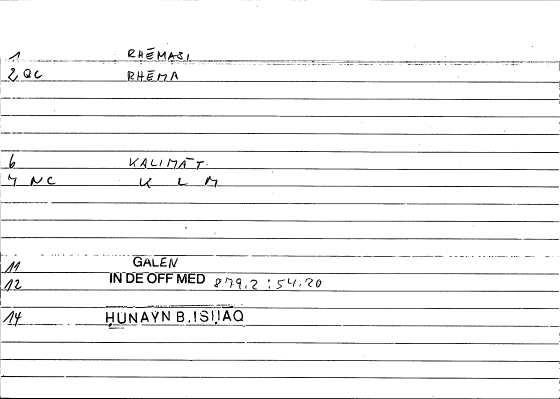 1 RHĒMASI
2 QC RHĒMA
6 KALIMĀT
7 NC K L M
11 GALEN
12 IN DE OFF MED 879.2 : 54.20
14 ḤUNAYN B. ISḤĀQ